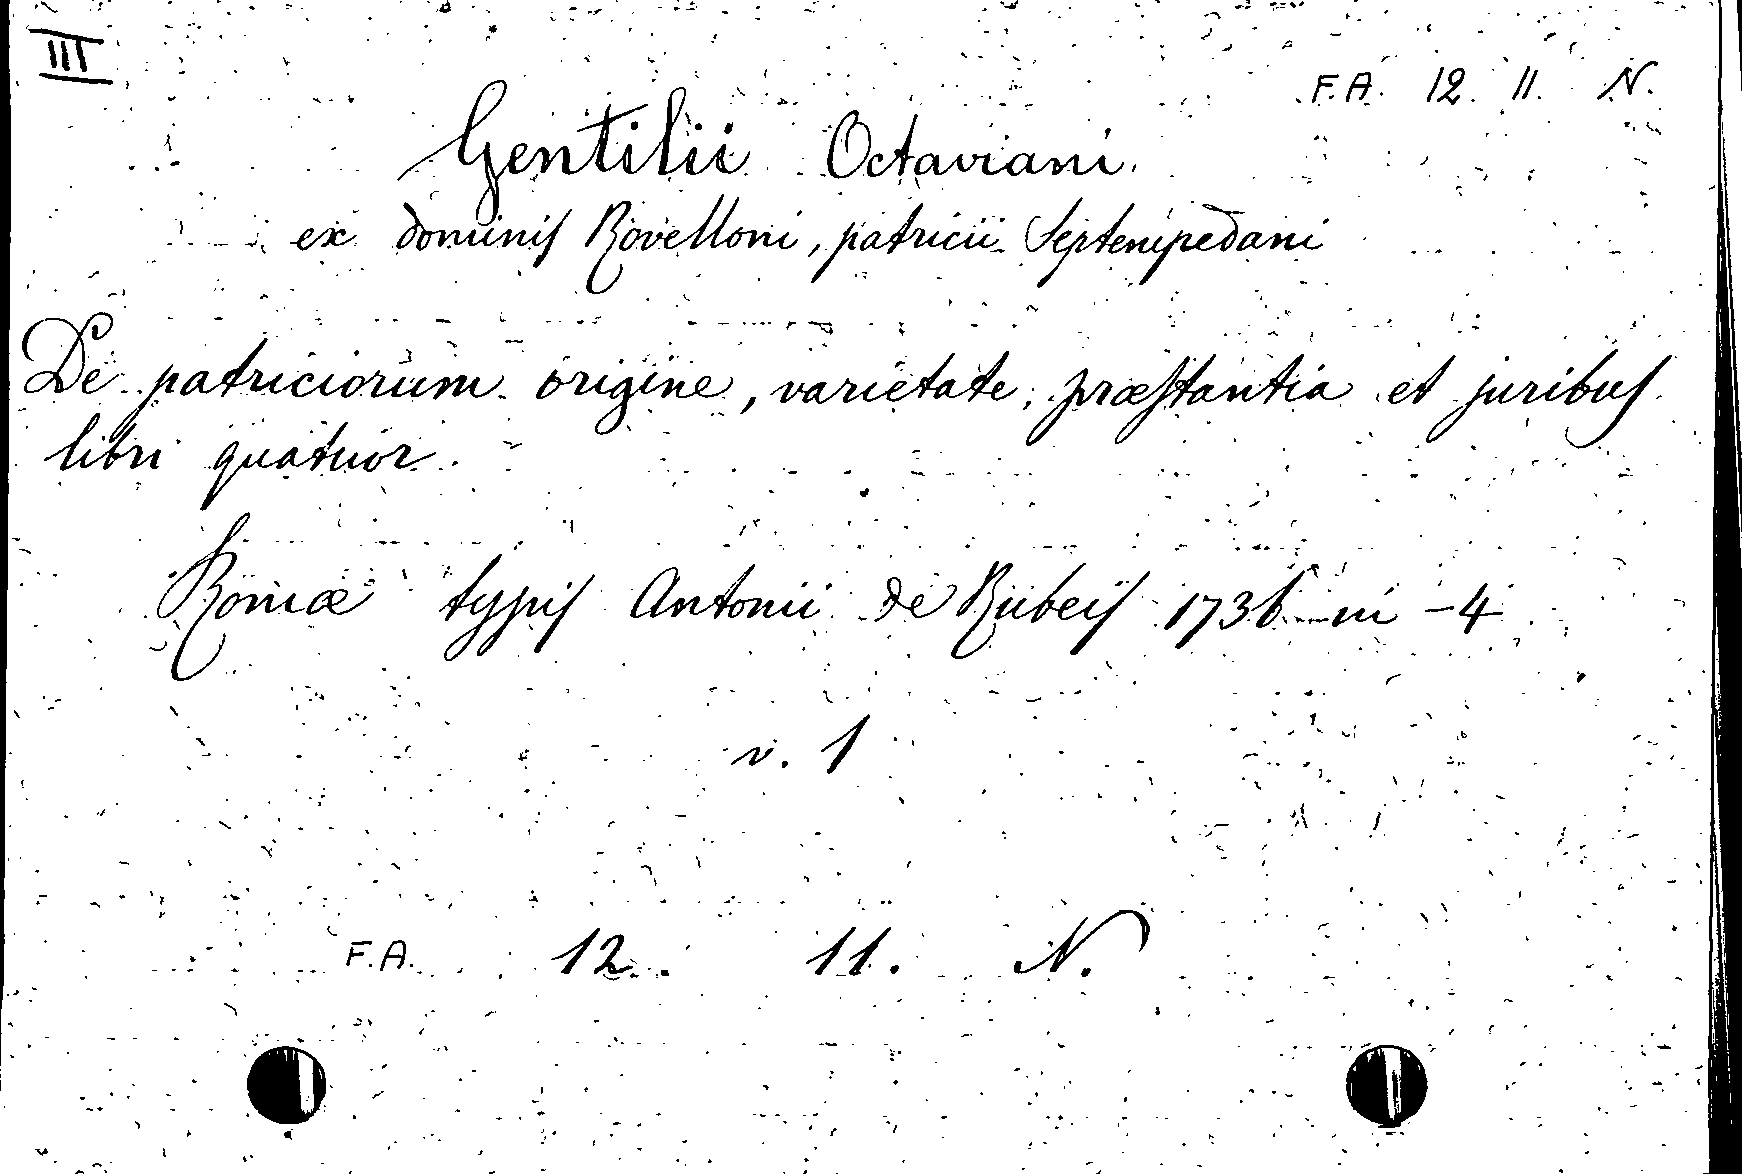 III
F.A. 12. 11. N.
Gentilii Octaviani
ex dominis Rovelloni, patricii Septempedani
De patriciorum origine, varietate, præstantia et juribus
libri quatuor.
Romæ typis Antonii de Rubeis 1736 in -4
v. 1
F.A. 12. 11. N.